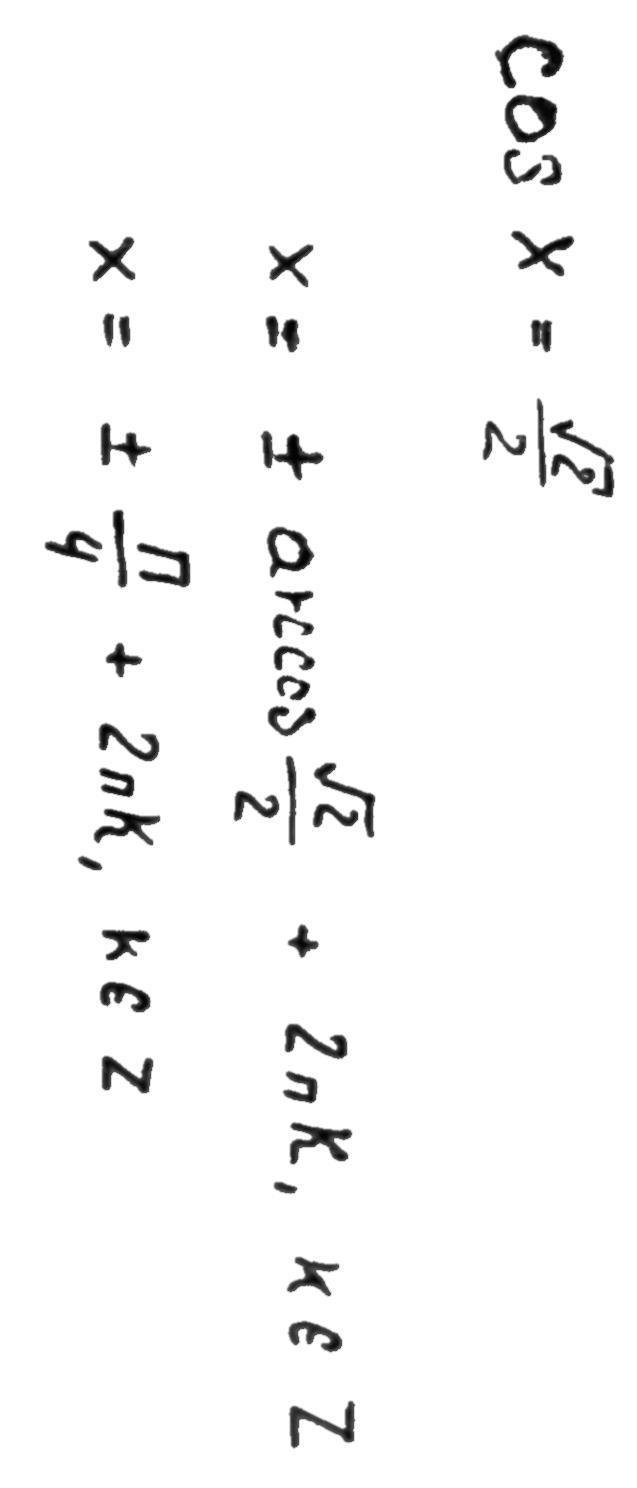 cos x = √2/2
x = ± arccos √2/2 + 2πk, k ∈ Z
x = ± π/4 + 2πk, k ∈ Z